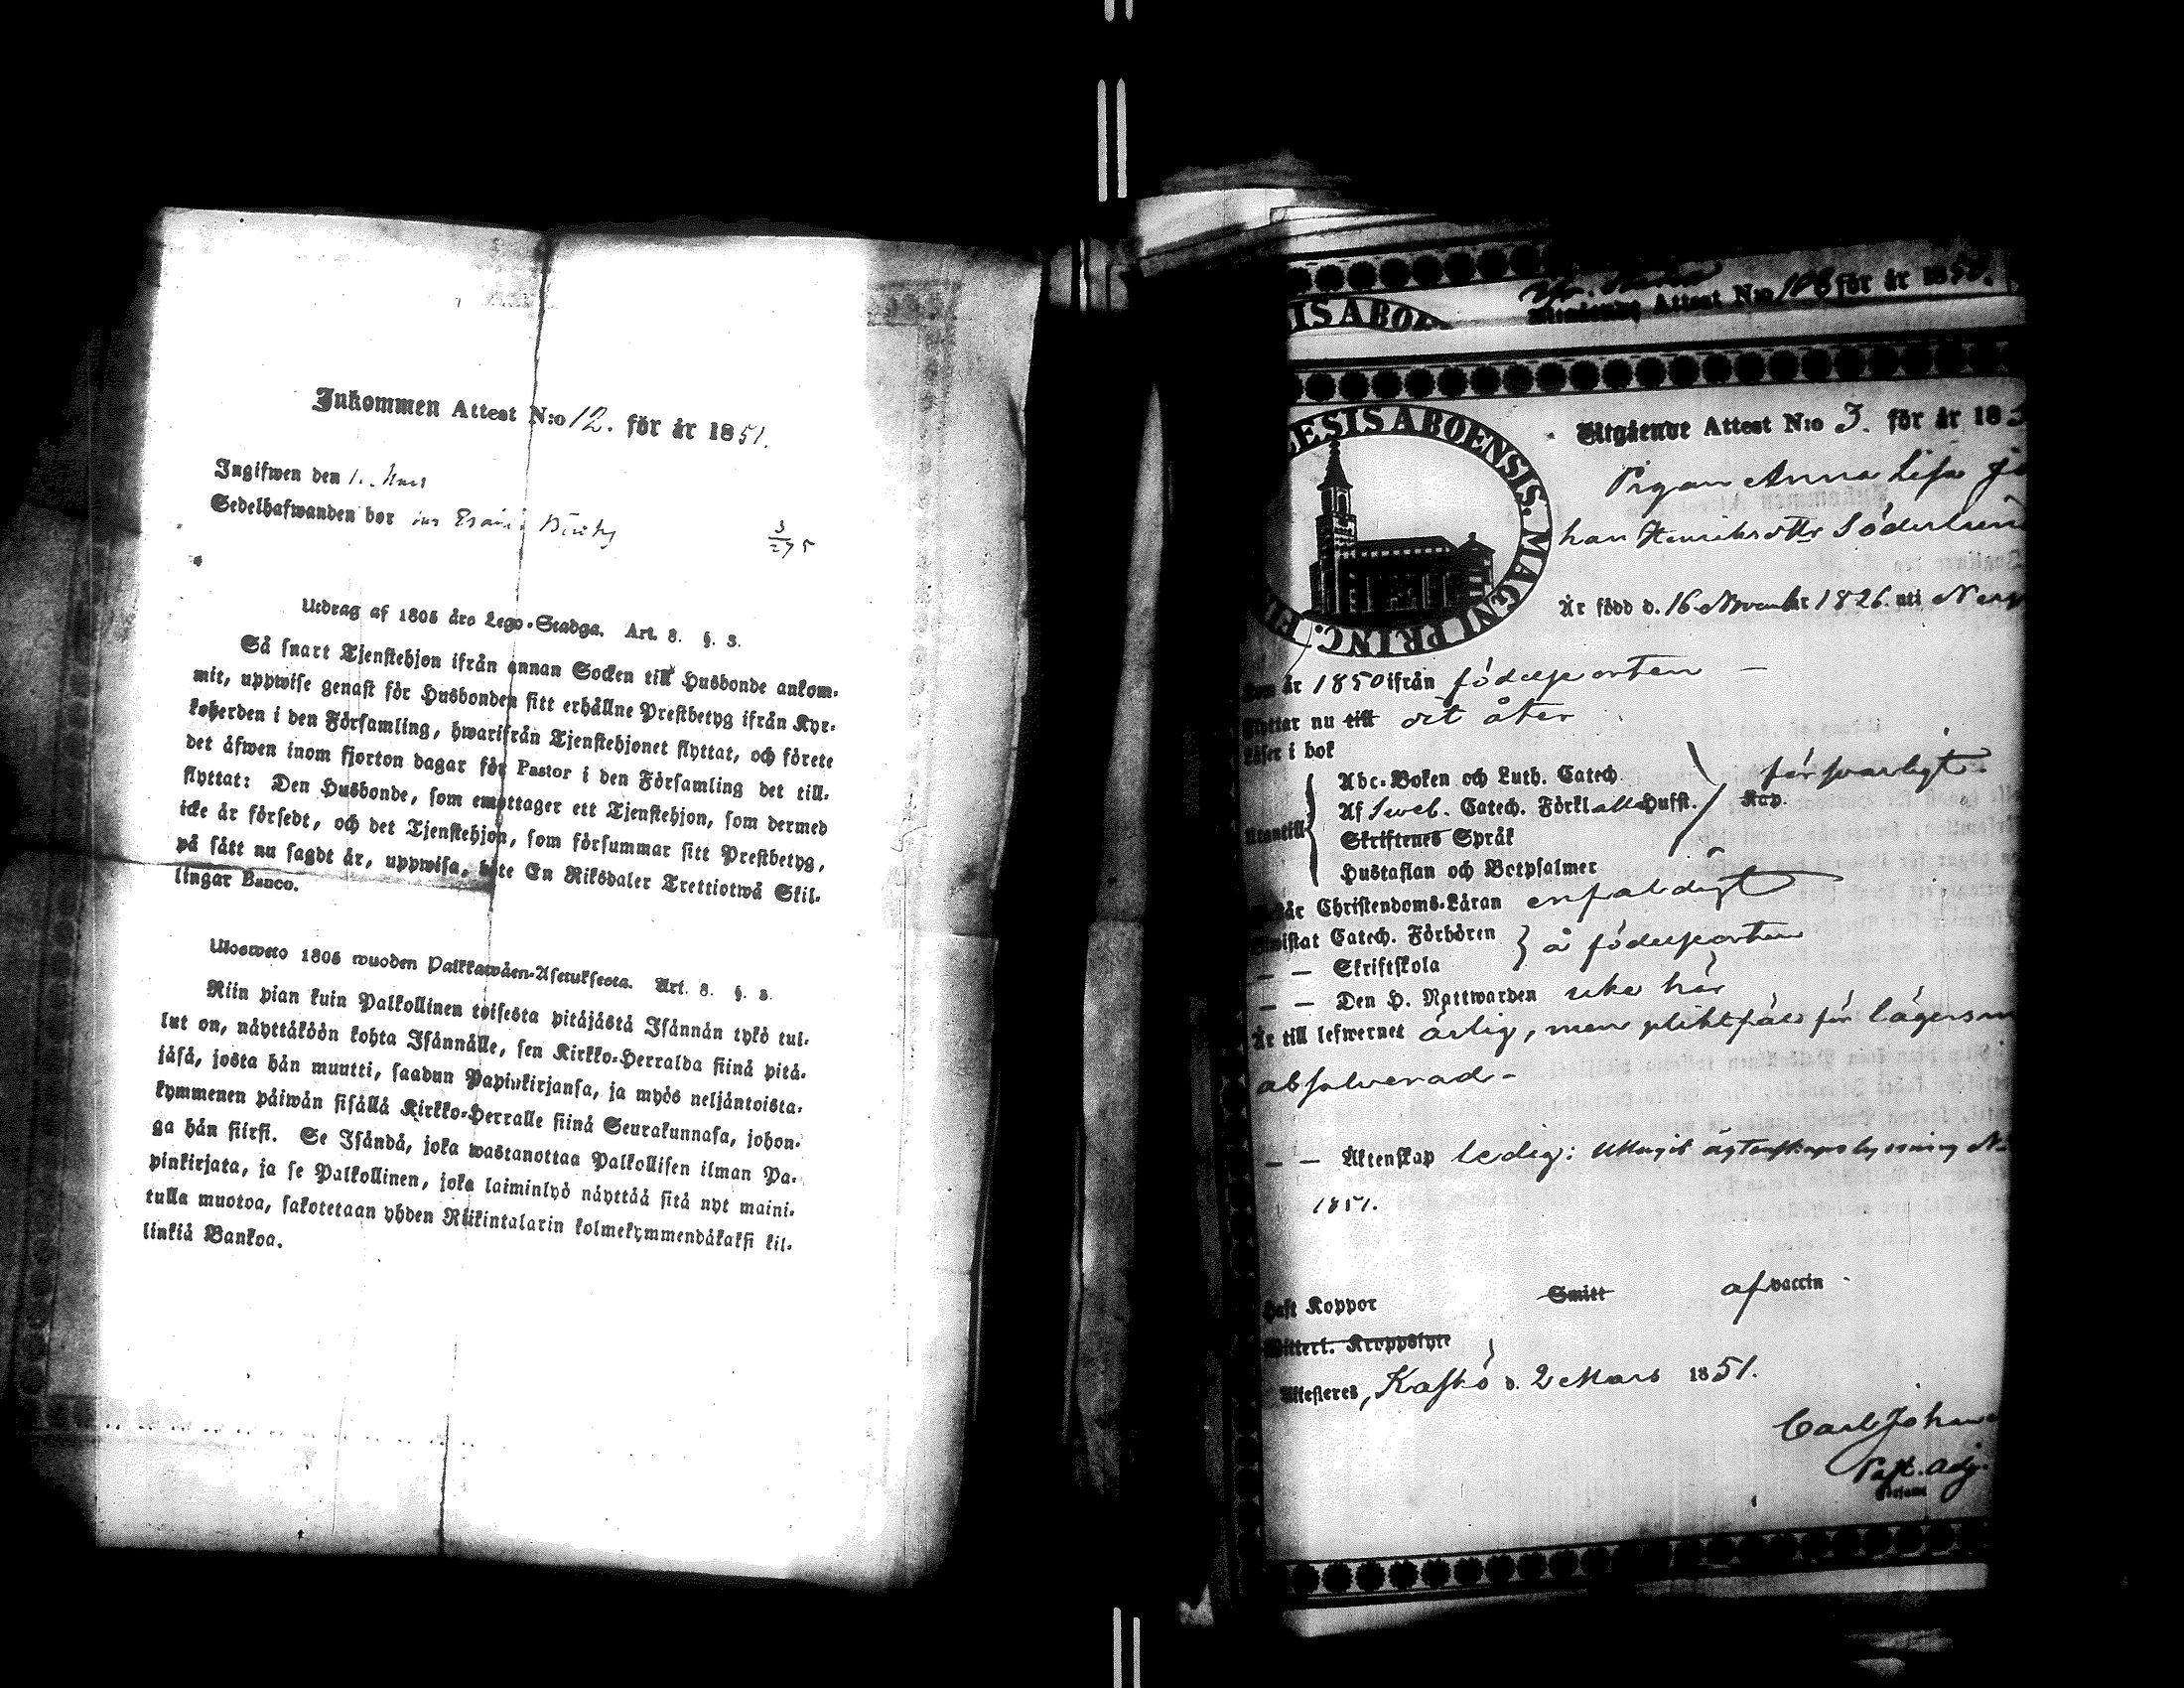 Inkommen Attest N:o 12. för år 1851.
Ingifwen den 1. Mars
Sedelhafwanden bor
3
275
Utdrag af 1805 års Lego-Stadga. Art. 8. §. 3.
Så snart Tjenstehjon ifrån annan Socken till Husbonde ankom-
mit, uppwise genast för Husbonden sitt erhållne Prestbetyg ifrån Kyr-
koherden i den Församling, hwarifrån Tjenstehjonet flyttat, och förete
det äfwen inom fjorton dagar för Pastor i den Församling det till-
flyttat: Den Husbonde, som emottager ett Tjenstehjon, som dermed
icke är försedt, och det Tjenstehjon, som försummar sitt Prestbetyg,
på sätt nu sagdt är, uppwisa, böte En Riksdaler Trettiotwå Skil-
lingar Banco.
Ulosweto 1805 wuoden Palkkawäen-Asetuksesta. Art. 8. §. 3.
Niin pian kuin Palkollinen toisesta pitäjästä Isännän tykö tul-
lut on, näyttäköön kohta Isännälle, sen Kirkko-Herralda siinä pitä-
jäsä, josta hän muutti, saadun Papinkirjansa, ja myös neljäntoista-
kymmenen päiwän sisällä Kirkko-Herralle siinä Seurakunnasa, johon-
ga hän siirsi. Se Isändä, joka wastanottaa Palkollisen ilman Pa-
pinkirjata, ja se Palkollinen, joka laiminlyö näyttää sitä nyt maini-
tulla muotoa, sakotetaan yhden Riikintalarin kolmekymmendäkaksi kil-
linkiä Bankoa.
Attest N:o 108 för år 1850.
SIS ABOE
LESIS ABOENSIS. MAGNI PRINC.
Utgående Attest N:o 3. för år 185
Pigan Anna Lisa Jo
han Henriksdttr Söderlund
Är född d. 16 November 1826. uti Nerp
år 1850 ifrån födelseorten –
flyttar nu till dit åter
Läser i bok
Utantill
Abc-Boken och Luth. Catech.
Af Sweb. Catech. Förkl alla Husst. Kap. försvarligt.
Skriftenes Språk
Hustaflan och Botpsalmer
Christendoms-Läran enfaldigt
Catech. Förhören
— — Skriftskola
å födelseorten
— — Den H. Nattwarden icke här
Är till lefwernet ärlig, men pliktfäld för lägersm
absolverad –
— — Äktenskap ledig: Uttagit äktenskapslysning N:
1851.
Haft Koppor Smitt af vaccin
Witterl. Kroppslyte
Attesteres, Kaskö d. 2 Mars 1851.
Carl Johan
Past. Adj.